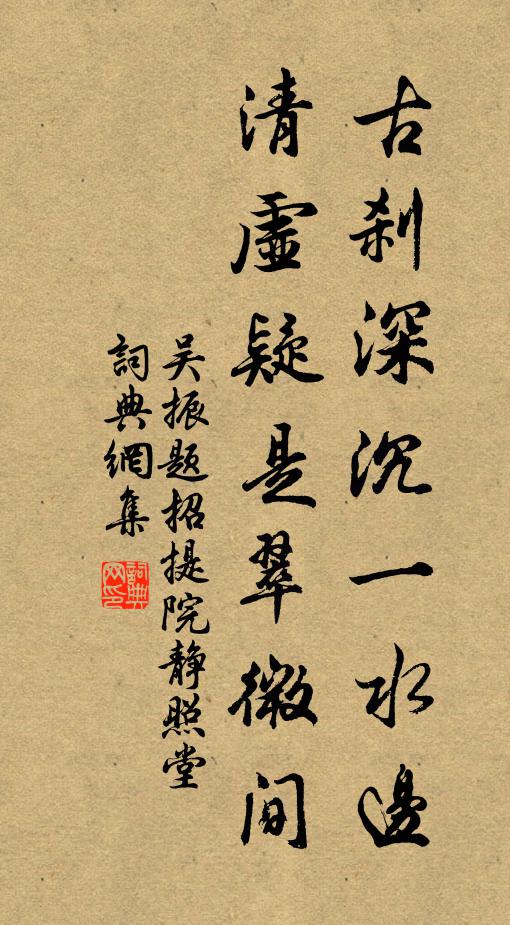 古刹深沉一水邊
清虛疑是翠微间
吴振题招提院静照堂
詞典網集
詞典网印